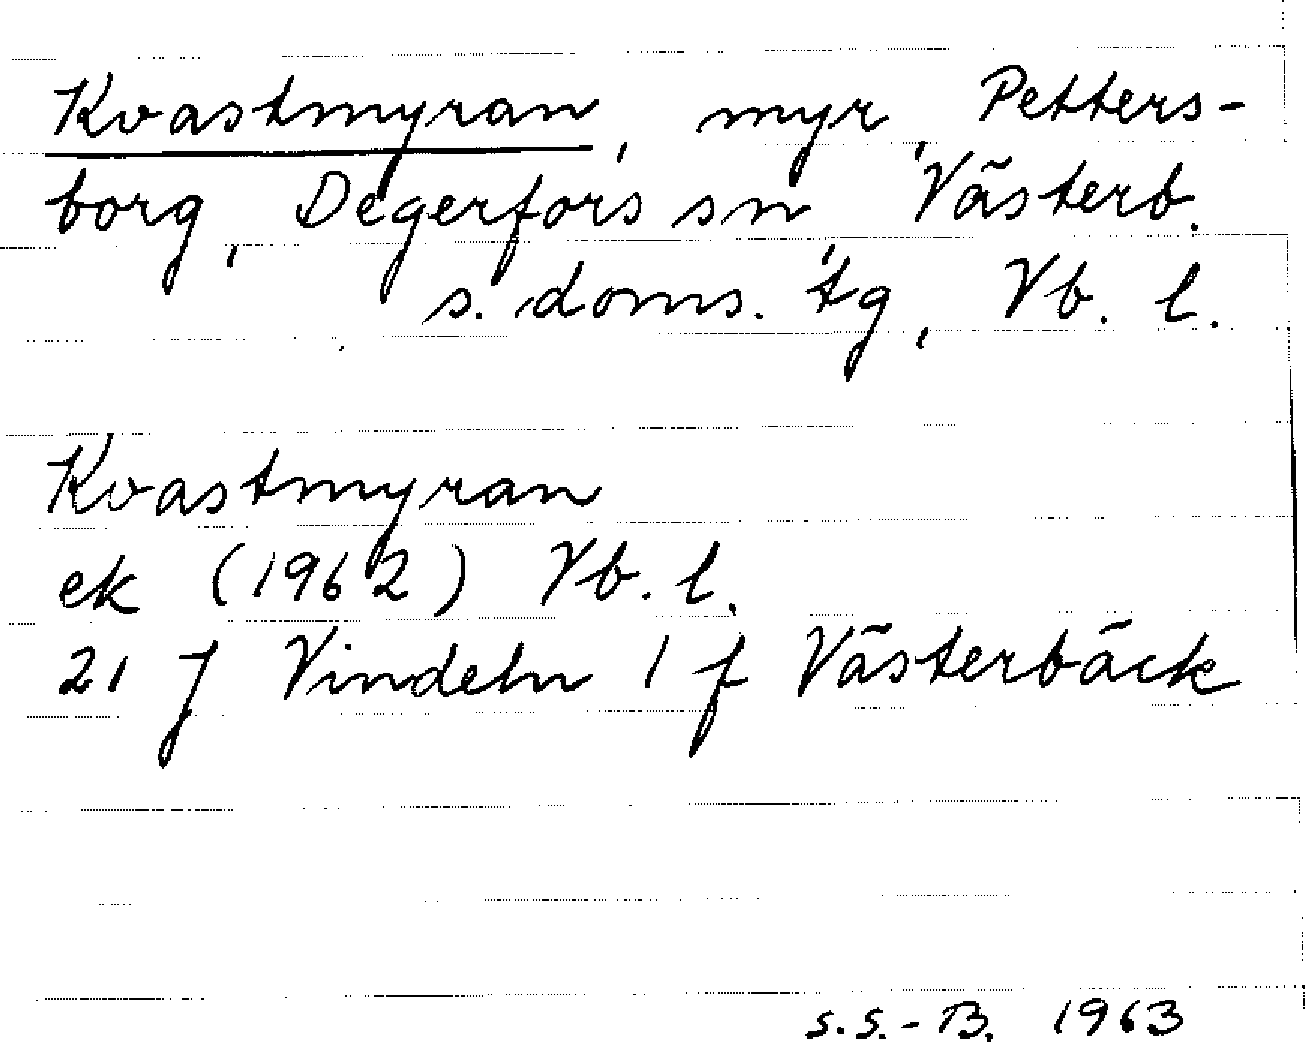 Kvastmyran, myr, Petters-
borg, Degerfors sn, Västerb.
s. doms. tg, Vb. l.
Kvastmyran
ek (1962) Vb. l.
21 J Vindeln 1 f Västerbäck
S.S.-B. 1963